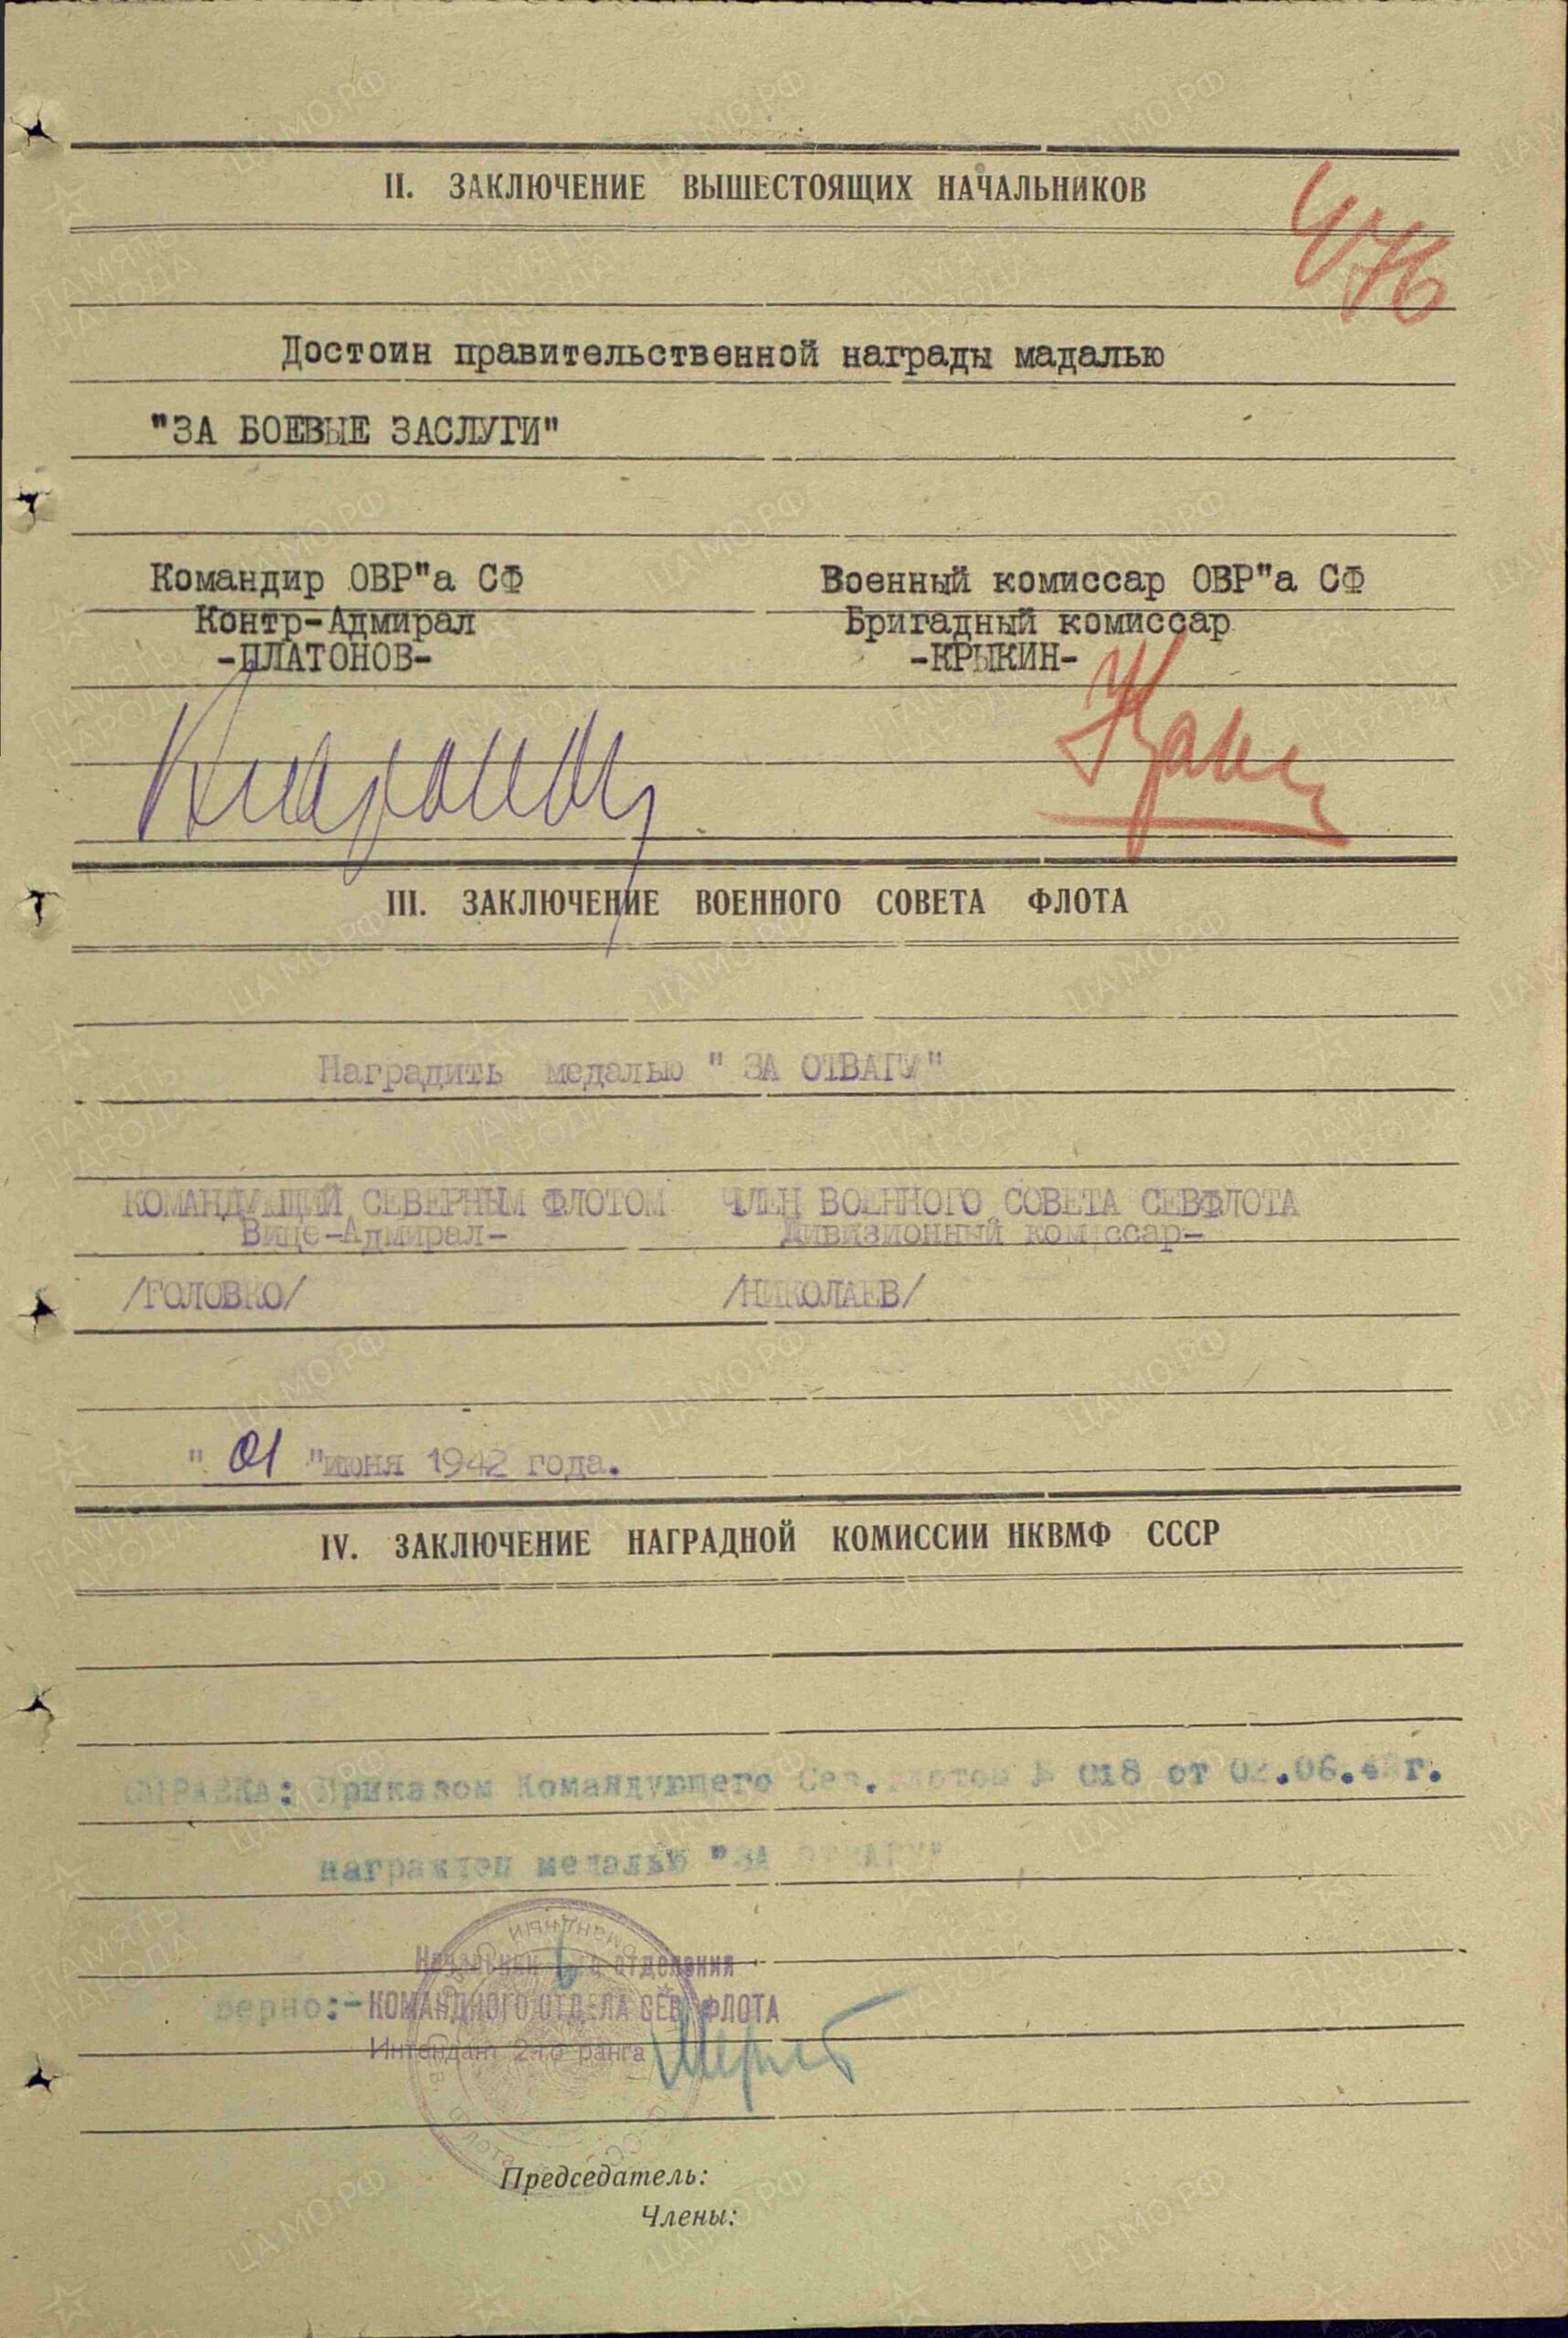 476
II. ЗАКЛЮЧЕНИЕ ВЫШЕСТОЯЩИХ НАЧАЛЬНИКОВ
Достоин правительственной награды мадалью
"ЗА БОЕВЫЕ ЗАСЛУГИ"
Командир ОВР"а СФ Военный комиссар ОВР"а СФ
Контр-Адмирал Бригадный комиссар
-ПЛАТОНОВ- -КРЫКИН-
III. ЗАКЛЮЧЕНИЕ ВОЕННОГО СОВЕТА ФЛОТА
Наградить медалью " ЗА ОТВАГУ"
КОМАНДУЮЩИЙ СЕВЕРНЫМ ФЛОТОМ ЧЛЕН ВОЕННОГО СОВЕТА СЕВФЛОТА
Вице-Адмирал- Дивизионный комиссар-
/ГОЛОВКО/ /НИКОЛАЕВ/
" 01 "июня 1942 года.
IV. ЗАКЛЮЧЕНИЕ НАГРАДНОЙ КОМИССИИ НКВМФ СССР
СПРАВКА: Приказом Командующего Сев. Флотом № 018 от 02.06.42г.
награжден медалью "ЗА ОТВАГУ"
Начальник 6 го отделения
Верно:- КОМАНДНОГО ОТДЕЛА СЕВ. ФЛОТА
Интендант 2-го ранга
Председатель:
Члены:
ПАМЯТЬ НАРОДА
ЦАМО.РФ